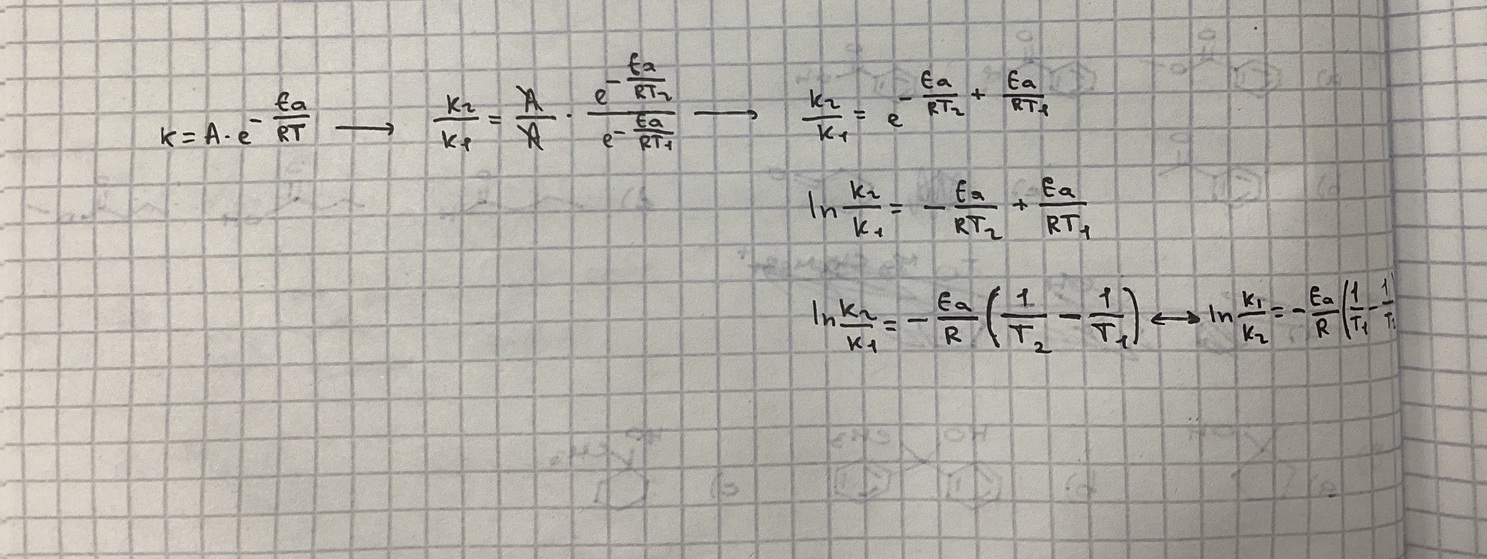 k = A · e^(-Ea/RT) → k₂/k₁ = A/A · e^(-Ea/RT₂) / e^(-Ea/RT₁) → k₂/k₁ = e^(-Ea/RT₂ + Ea/RT₁)
ln k₂/k₁ = - Ea/RT₂ + Ea/RT₁
ln k₂/k₁ = - Ea/R (1/T₂ - 1/T₁) ↔ ln k₁/k₂ = - Ea/R (1/T₁ - 1/T